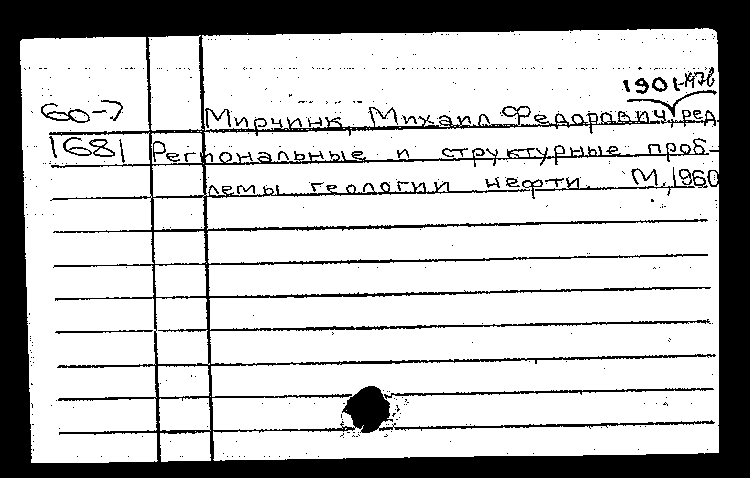 1901-1976
60-7 Мирчинк, Михаил Федорович, ред.
1681 Региональные и структурные проб-
лемы геологии нефти. М., 1960